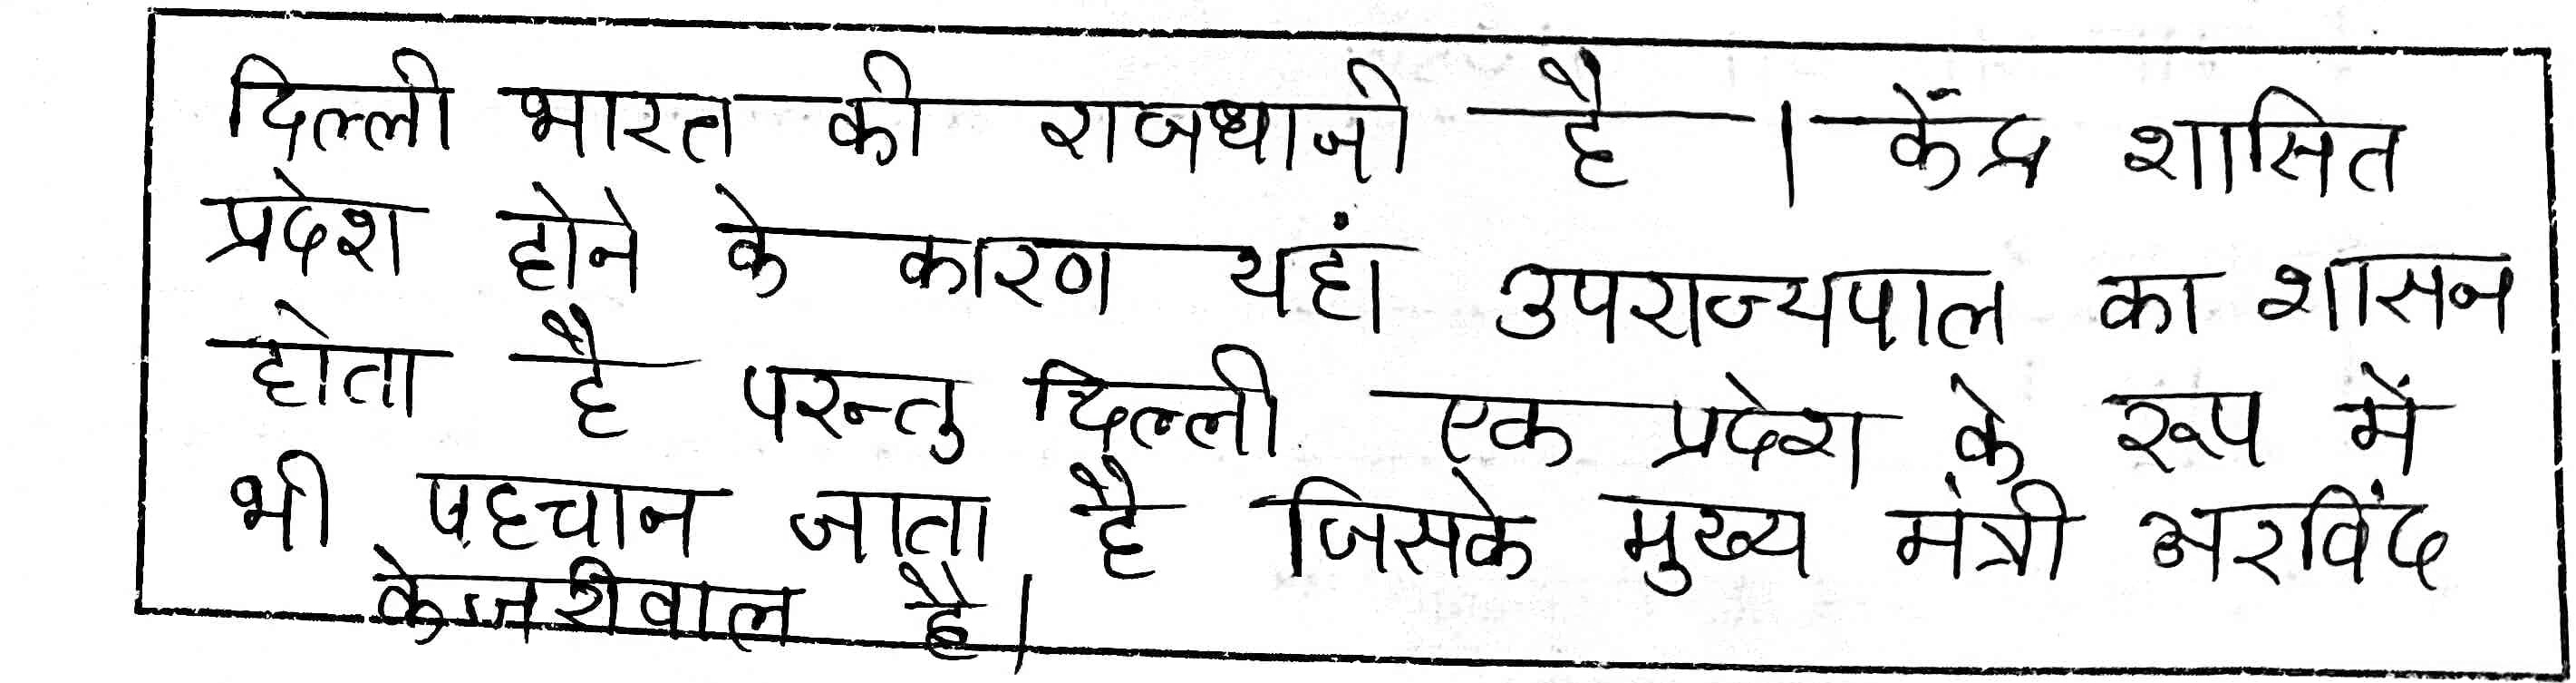 दिल्ली भारत की राजधानी है । केंद्र शासित
प्रदेश होने के कारण यहां उपराज्यपाल का शासन
होता है परन्तु दिल्ली एक प्रदेश के रूप में
भी पहचान जाता है जिसके मुख्य मंत्री अरविंद
केजरीवाल है।